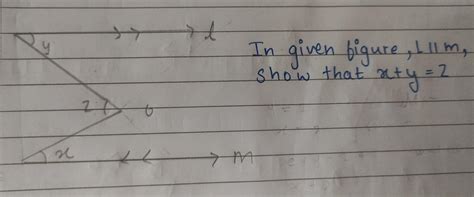 l
y
In given figure, l || m,
show that x+y = z
z
o
x
m